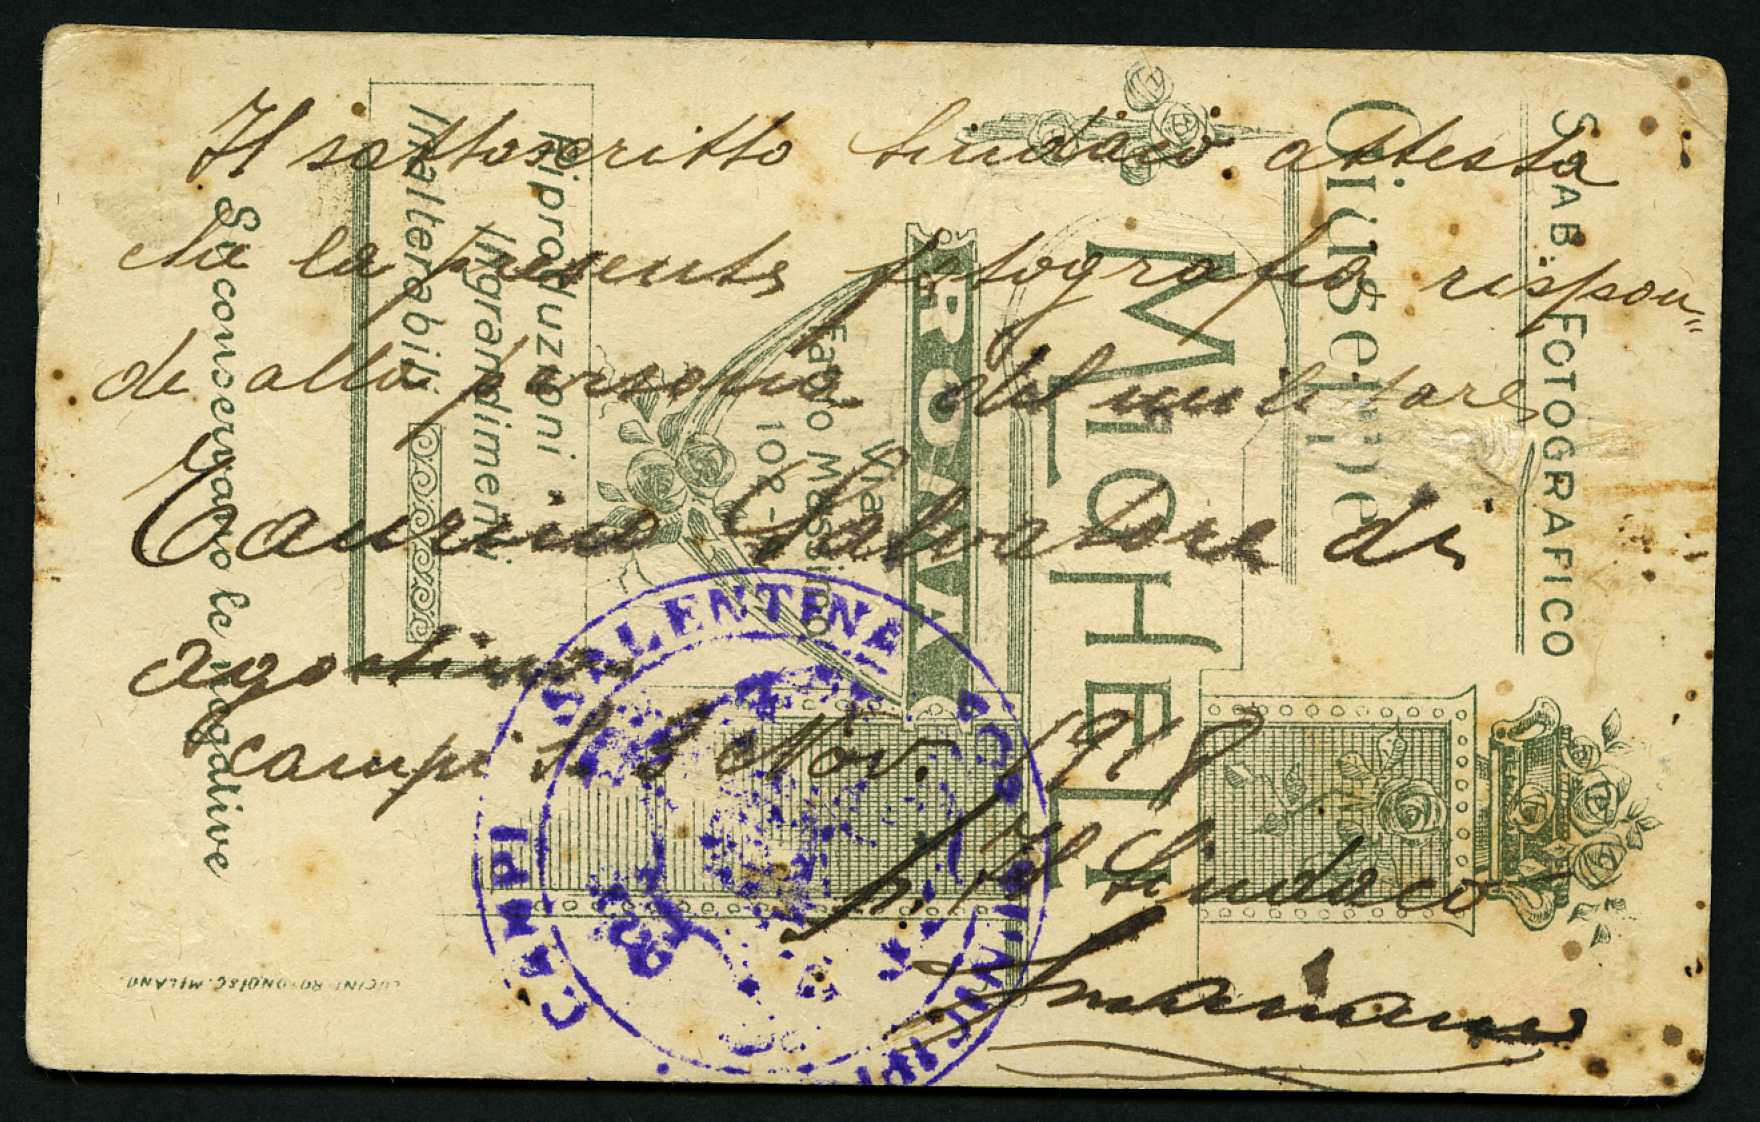 Il sottoscritto Sindaco attesta
che la presente fotografia rispon=
de alla persona del militare
Taurino Salvatore di
Agostino
Campi S. 3 Nov. 1918
p. Il Sindaco
STAB. FOTOGRAFICO
Giuseppe
MICHELI
ROMA
Via
Fabio Massimo
102 -
Riproduzioni
Ingrandimenti
Inalterabili
Si conservano le negative
MILANO.
CAMPI SALENTINA
MUNICIPIO